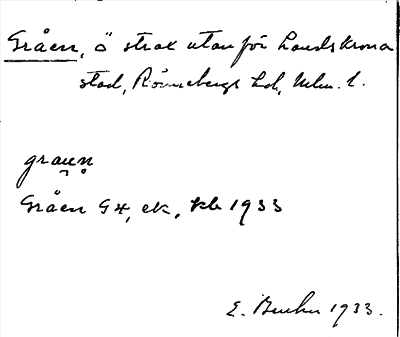 Gråen, ö strax utanför Landskrona
stad, Rönnebergs hd, Mlm. l.
graun
Gråen GK, ek, kb 1933
E. 1933.